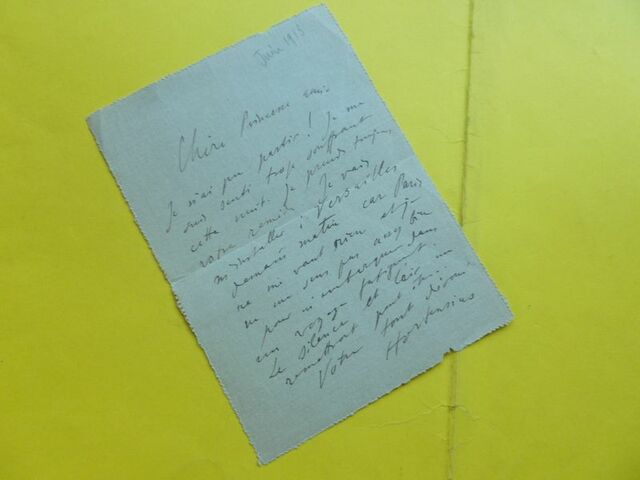 Juin 1913
Chère Princesse amie
Je n'ai pu partir! Je me
suis senti trop souffrant
cette nuit. Je prends toujours
votre remède. Je vais
m'installer à Versailles
demain matin car Paris
ne me vaut rien et je
ne me sens pas assez bien
pour m'embarquer dans
un voyage fatigant.
Le silence et l'air me
remettront peut-être.
Votre tout dévoué
Hortensius